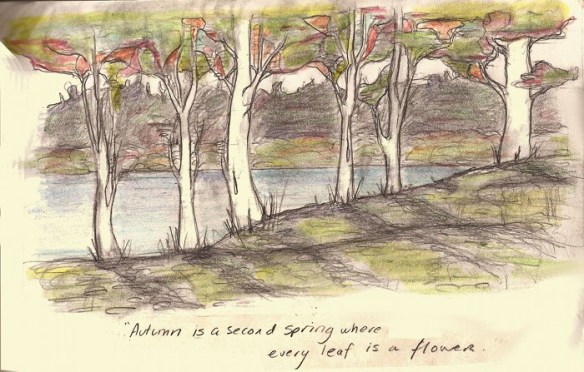 "Autumn is a second spring where
every leaf is a flower.